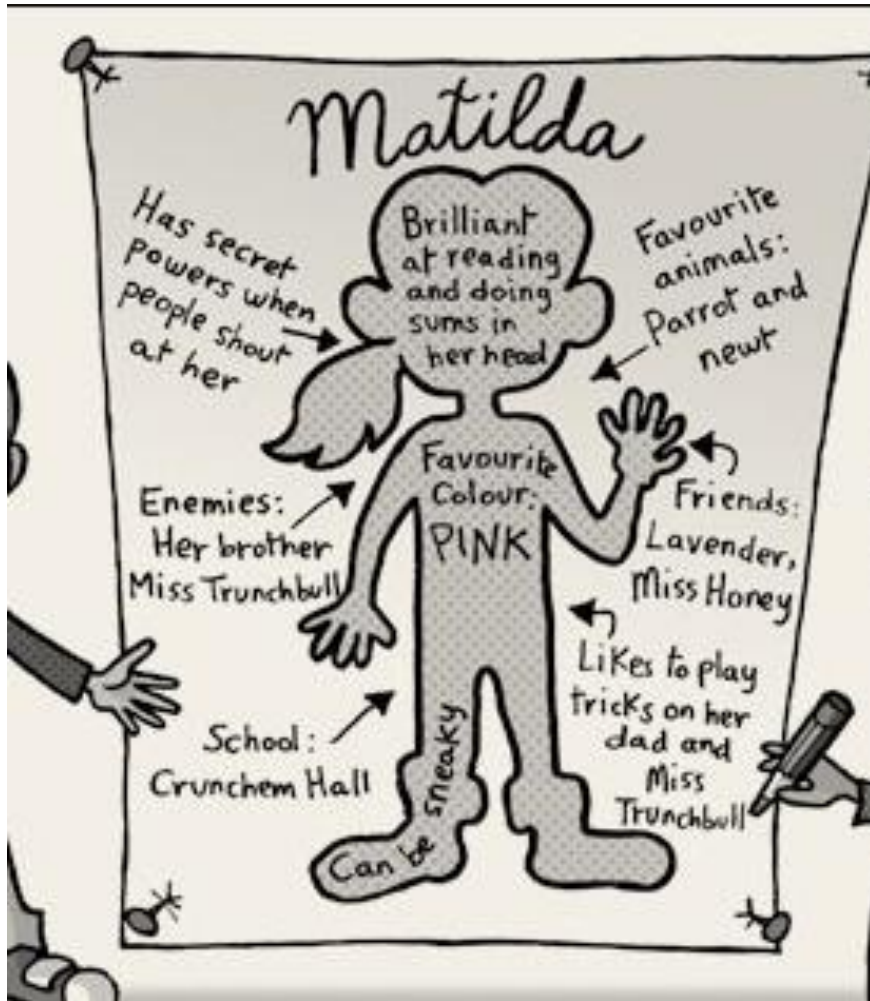 Matilda
Has secret
powers when
people shout
at her
Brilliant
at reading
and doing
sums in
her head
Favourite
animals:
Parrot and
newt
Favourite
Colour:
PINK
Enemies:
Her brother
Miss Trunchbull
Friends:
Lavender,
Miss Honey
Likes to play
tricks on her
dad and
Miss
Trunchbull
School:
Crunchem Hall
Can be sneaky